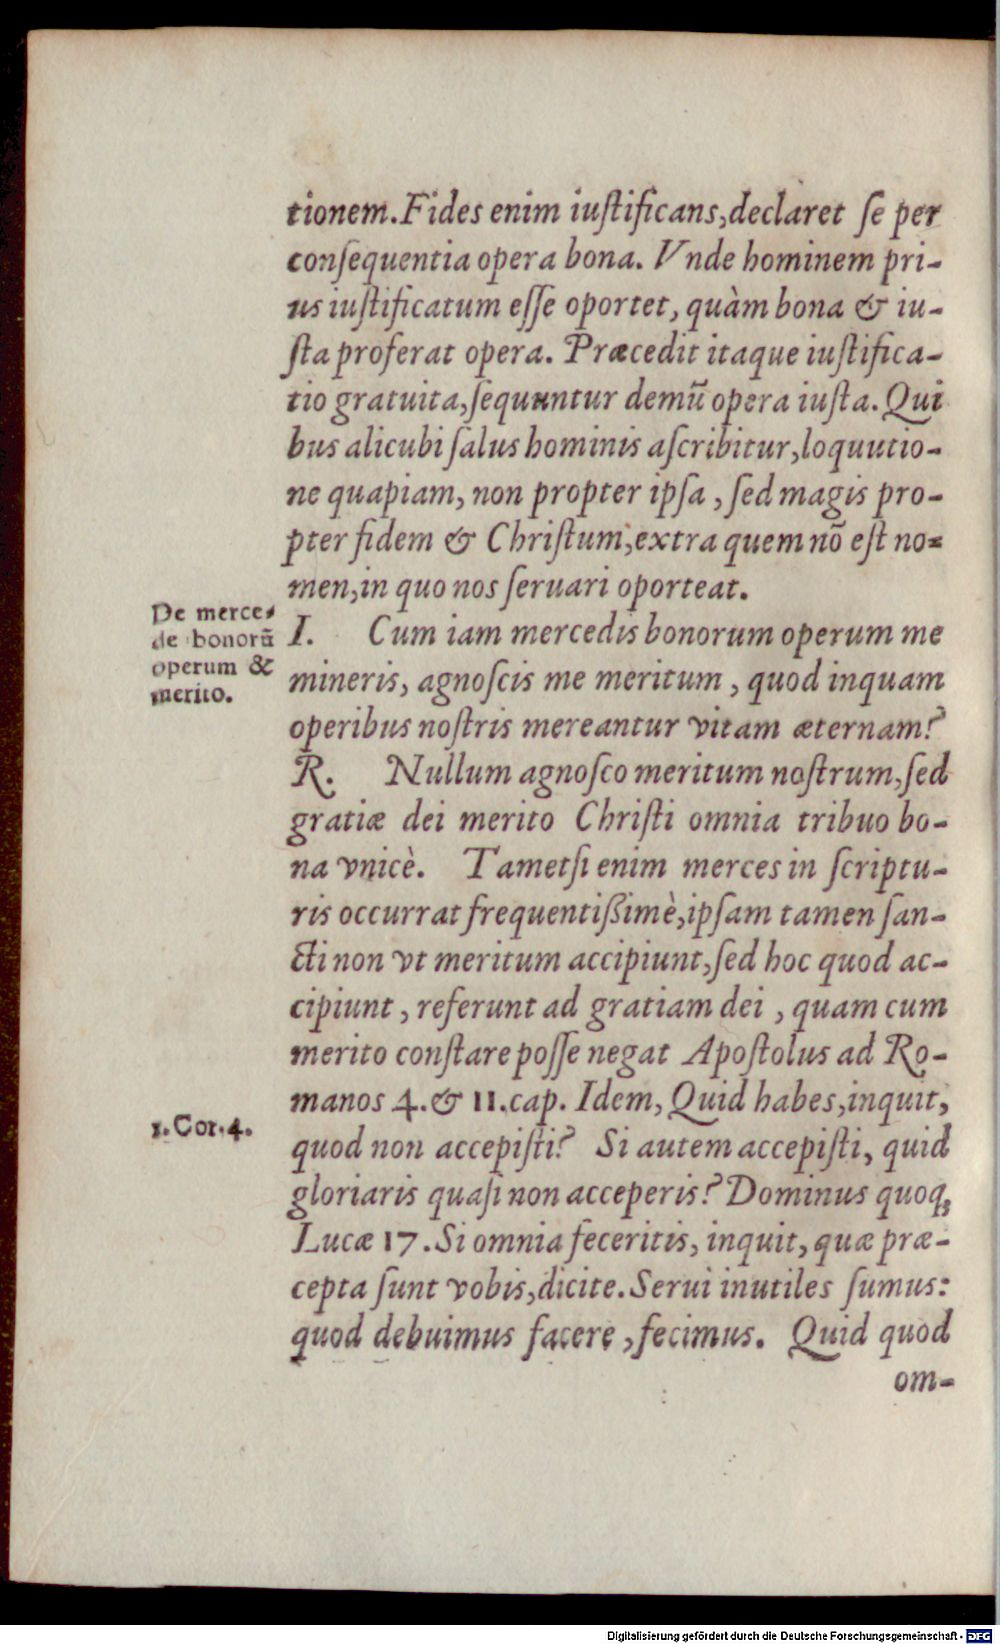 tionem. Fides enim iuſtificans, declaret ſe per
conſequentia opera bona. Vnde hominem pri-
us iuſtificatum eſſe oportet, quàm bona & iu-
ſta proferat opera. Præcedit itaque iuſtifica-
tio gratuita, ſequuntur demũ opera iuſta. Qui
bus alicubi ſalus hominis aſcribitur, loquutio-
ne quapiam, non propter ipſa, ſed magis pro-
pter fidem & Chriſtum, extra quem nõ eſt no-
men, in quo nos ſeruari oporteat.
De merce-
de bonorũ
operum &
merito.
I. Cum iam mercedis bonorum operum me
mineris, agnoſcis me meritum, quod inquam
operibus noſtris mereantur vitam æternam?
R. Nullum agnoſco meritum noſtrum, ſed
gratiæ dei merito Chriſti omnia tribuo bo-
na vnicè. Tametſi enim merces in ſcriptu-
ris occurrat frequentißimè, ipſam tamen ſan-
cti non vt meritum accipiunt, ſed hoc quod ac-
cipiunt, referunt ad gratiam dei, quam cum
merito conſtare poſſe negat Apoſtolus ad Ro-
manos 4. & 11. cap. Idem, Quid habes, inquit,
1. Cor. 4.
quod non accepiſti? Si autem accepiſti, quid
gloriaris quaſi non acceperis? Dominus quoq;
Lucæ 17. Si omnia feceritis, inquit, quæ præ-
cepta ſunt vobis, dicite. Serui inutiles ſumus:
quod debuimus facere, fecimus. Quid quod
om-
Digitalisierung gefördert durch die Deutsche Forschungsgemeinschaft - DFG